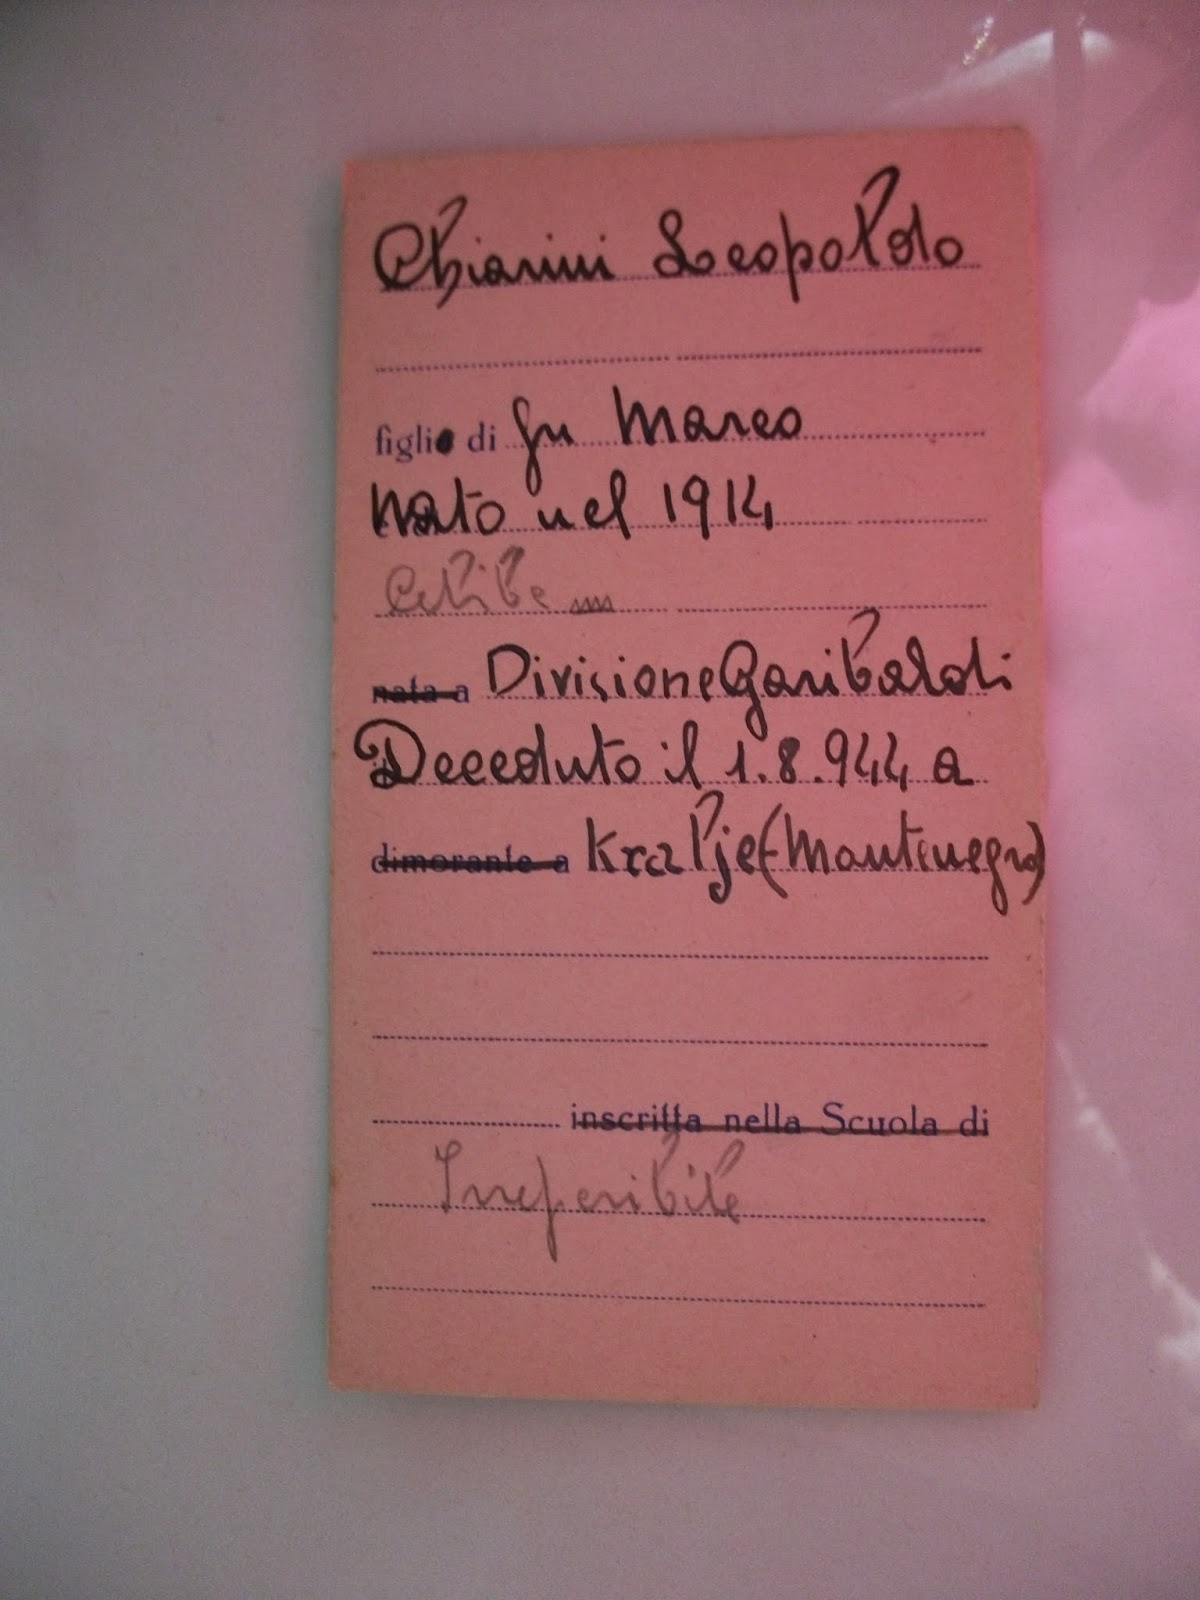 Chiarini Leopoldo
figlio di fu Marco
Nato nel 1914
Celibe
nata a Divisione Garibaldi
Deceduto il 1.8.944 a
dimorante a Kralje (Montenegro)
inscritta nella Scuola di
Irreperibile